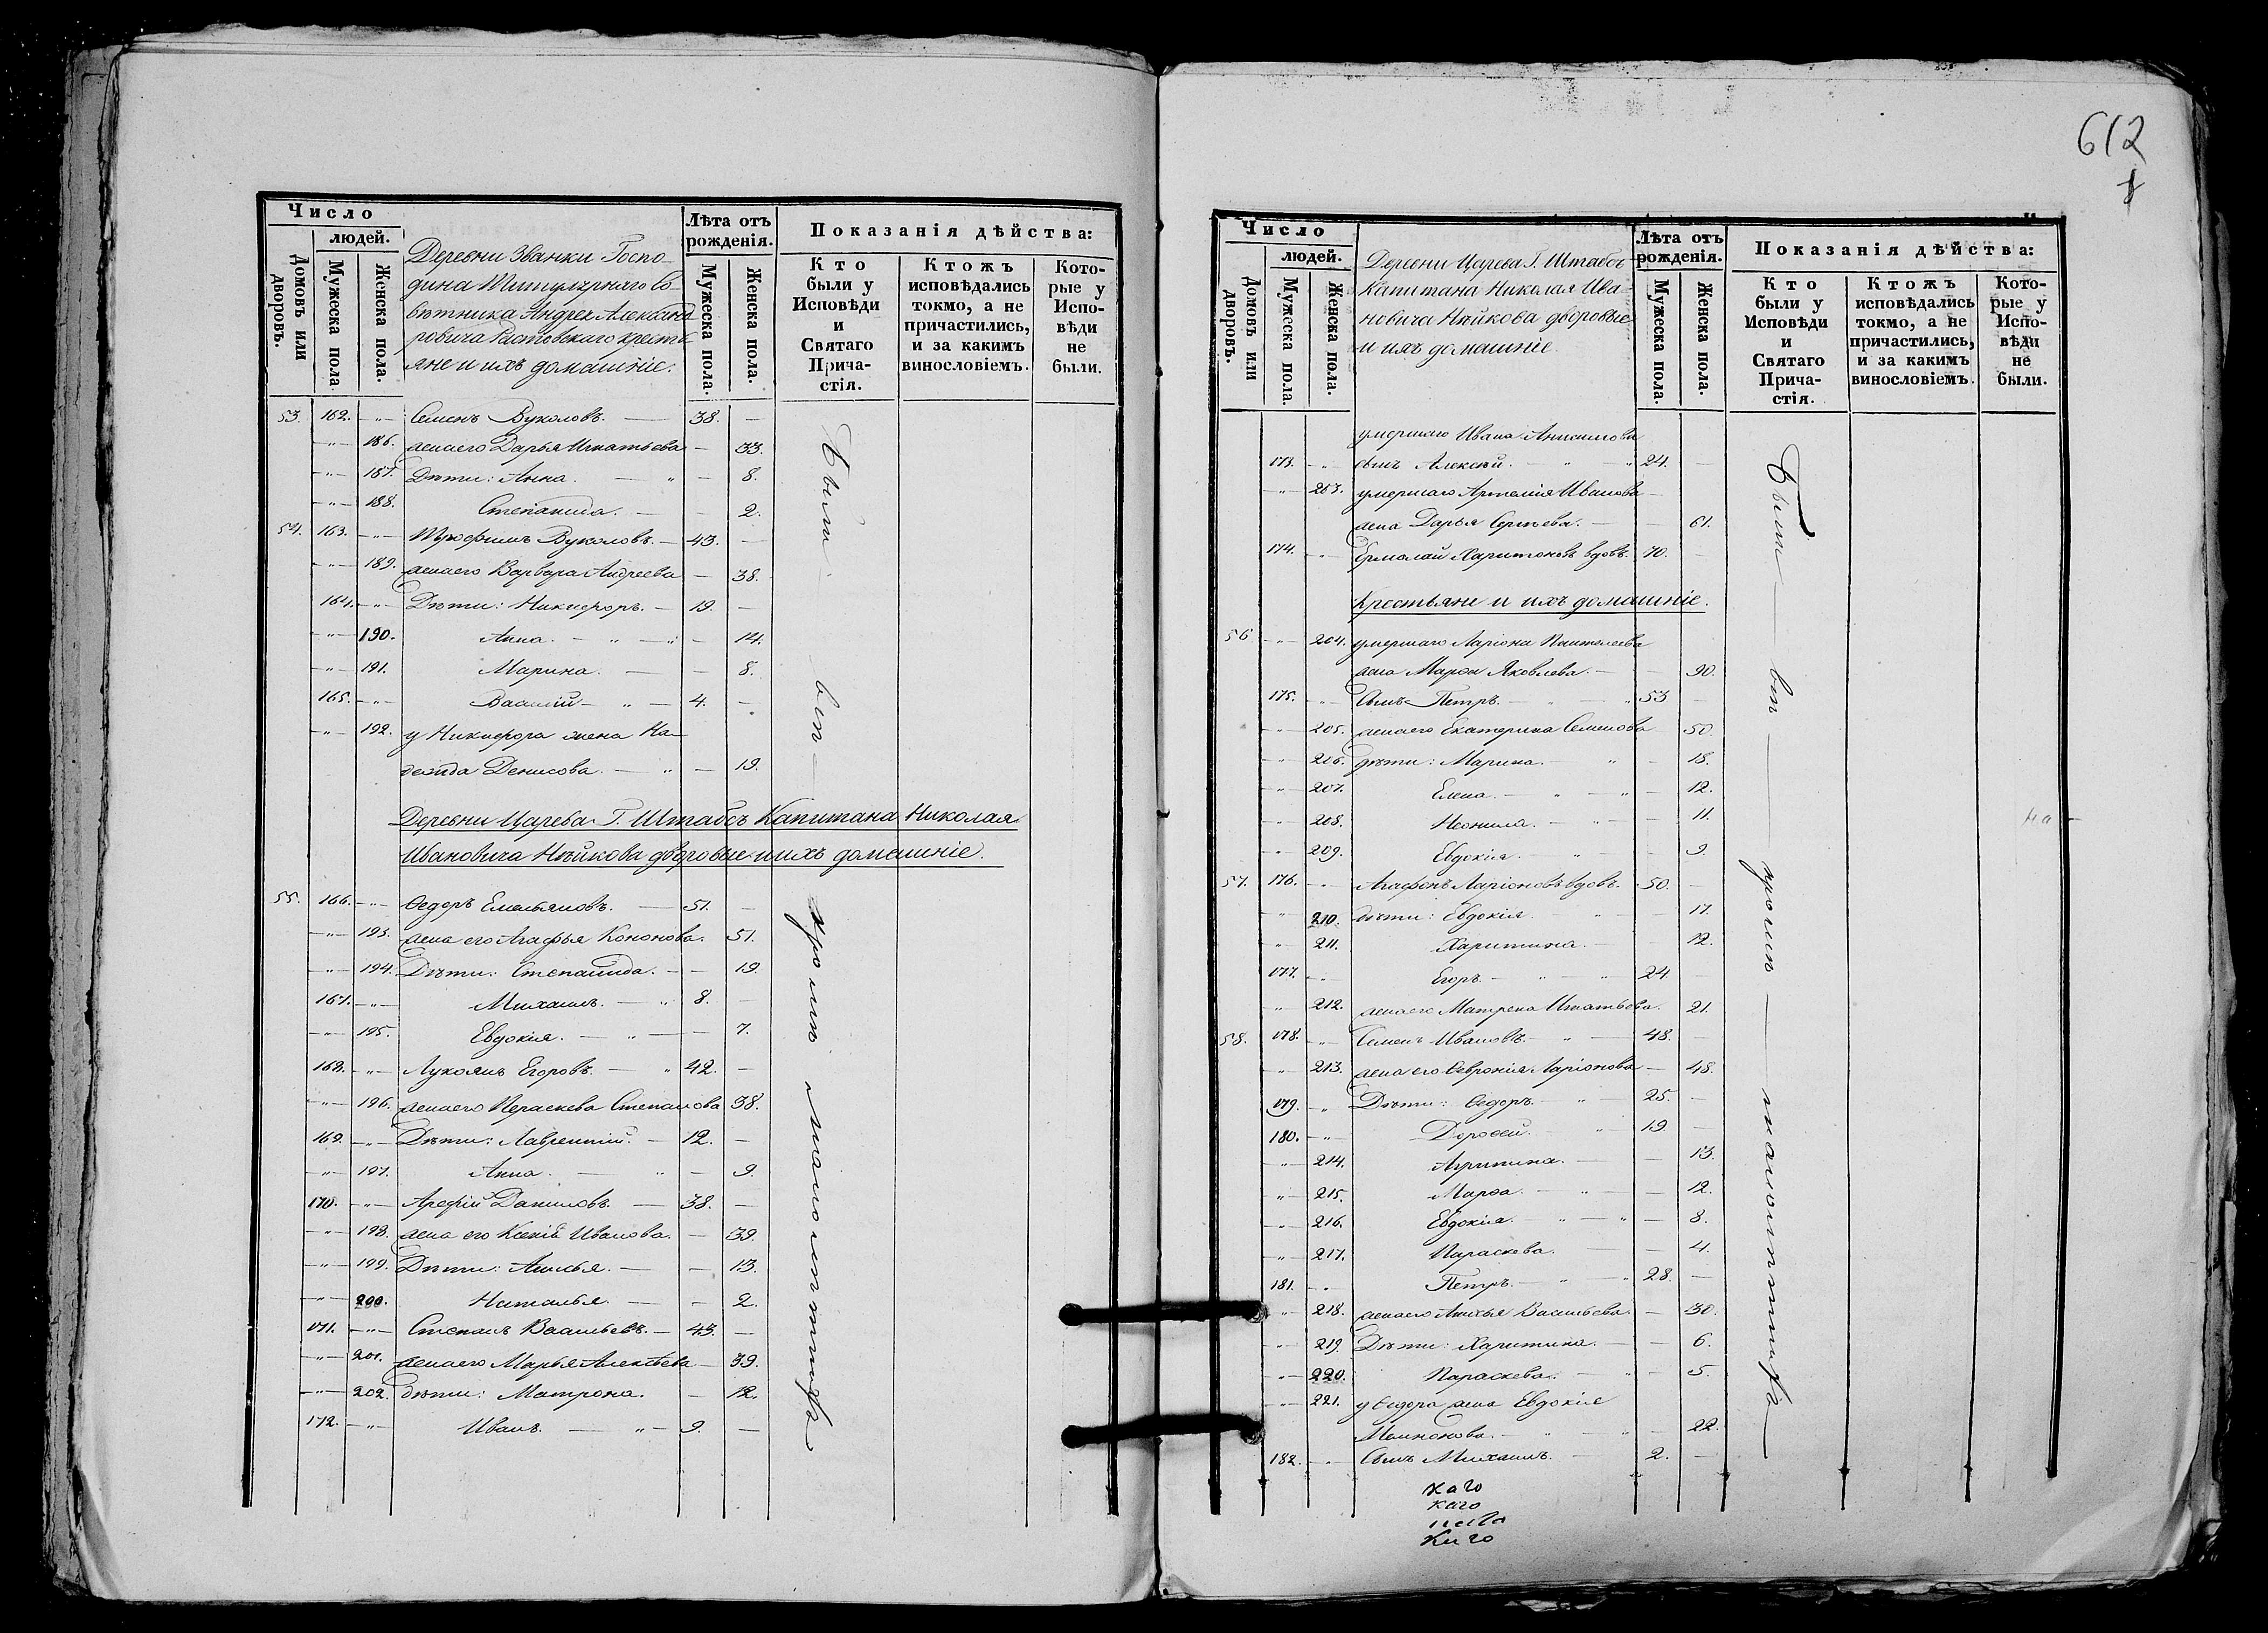 Число
людей.
Домовъ или дворовъ.
Мужеска пола.
Женска пола.
Деревни Званки Госпо-
дина Титулярнаго Со-
вѣтника Андрея Александ
ровича Растовскаго кресть
яне и ихъ домашніе.
Лѣта отъ рожденія.
Мужеска пола.
Женска пола.
Показанія дѣйства:
Кто были у Исповѣди и Святаго Прича-стія.
Ктожъ исповѣдались токмо, а не причастились, и за какимъ винословіемъ.
Кото-рые у Испо-вѣди не были.
53. 162. —"— Семенъ Вуколовъ. — 38. —
—"— 186. жена его Дарья Игнатьева — 33.
—"— 187. Дѣти: Анна. — " — 8.
—"— 188. Степанида. — — 2.
54. 163. —"— Трофимъ Вуколовъ. — 43. —
—"— 189. жена его Варвара Андреева — 38.
164. —"— Дѣти: Никифоръ. — 19. —
—"— 190. Анна. — " — " — 14.
—"— 191. Марина. — — 8.
165. —"— Василій — " — 4. —
—"— 192. у Никифора жена На-
дежда Денисова. — " — 19.
Деревни Царева Г. Штабсъ Капитана Николая
Ивановича Нѣйкова дворовые и ихъ домашніе.
55. 166. —"— Ѳедоръ Емельяновъ. — 51. —
—"— 193. жена его Агафья Кононова. 51.
—"— 194. Дѣти: Степанида. — — 19.
167. —"— Михаилъ. — " 8. —
—"— 195. Евдокія. — " — 7.
168. —"— Лукоянъ Егоровъ. — " 42. —
—"— 196. жена его Пераскева Степанова 38.
169. —"— Дѣти: Лаврентій. — 12. —
—"— 197. Анна. — " — 9.
170. —"— Арефій Даниловъ. — 38. —
—"— 198. жена его Ксенія Иванова. — 39.
—"— 199. Дѣти: Анисья. — — 13.
—"— 200. Наталья. — — 2.
171. —"— Степанъ Васильевъ. — 43. —
—"— 201. жена его Марья Алексѣева — 39.
—"— 202. дѣти: Матрона. — 12.
172. —"— Иванъ. — " — 9. —
Были — вси — кромѣ малолѣтнихъ
612
Число
людей.
Домовъ или дворовъ.
Мужеска пола.
Женска пола.
Деревни Царева Г. Штабсъ
Капитана Николая Ива-
новича Нѣйкова дворовые
и ихъ домашніе.
Лѣта отъ рожденія.
Мужеска пола.
Женска пола.
Показанія дѣйства:
Кто были у Исповѣди и Святаго Прича-стія.
Ктожъ исповѣдались токмо, а не причастились, и за какимъ винословіемъ.
Кото-рые у Испо-вѣди не были.
умершаго Ивана Анисимова
173. —"— сынъ Алексѣй. — " — " 24. —
—"— 203. умершаго Артемія Иванова —
жена Дарья Сергѣева. — — 61.
174. —"— Ермолай Харитоновъ вдовъ. 70. —
Крестьяне и ихъ домашніе.
56 —"— 204. умершаго Ларіона Пантелеева
жена Марѳа Яковлева. — — 90.
175. —"— Сынъ Петръ. — " — " 53 —
—"— 205. жена его Екатерина Семенова 50.
—"— 206. дѣти: Марина. — " — 15.
—"— 207. Елена. — " — " — 12.
—"— 208. Неонила. — " — — 11.
—"— 209. Евдокія. — " — 9.
57. 176. —"— Агафонъ Ларіоновъ вдовъ. 50. —
—"— 210. дѣти: Евдокія. — " — 17.
—"— 211. Харитина. — 12.
177. —"— Егоръ. — " — " 24. —
—"— 212. жена его Матрена Игнатьева. 21.
58. 178. —"— Семенъ Ивановъ. — " — 48. —
—"— 213. жена его Ѳевронія Ларіонова — 48.
179. —"— Дѣти: Ѳедоръ. — " — 25. —
180. —"— Дороѳей. — " — 19 —
—"— 214. Агрипина. — — 13.
—"— 215. Марѳа. — " — — 12.
—"— 216. Евдокія. — " — " — 8.
—"— 217. Параскева. — — 4.
181. —"— Петръ. — " — " 28. —
—"— 218. жена его Анисья Васильева. — 30.
—"— 219. Дѣти: Харитина. — — 6.
—"— 220. Параскева. — " — 5.
—"— 221. у Ѳедора жена Евдокія
— " — " — 22.
182. —"— Сынъ Михаилъ. — 2. —
Были — вси — кромѣ — малолѣтнихъ —
каго
каго